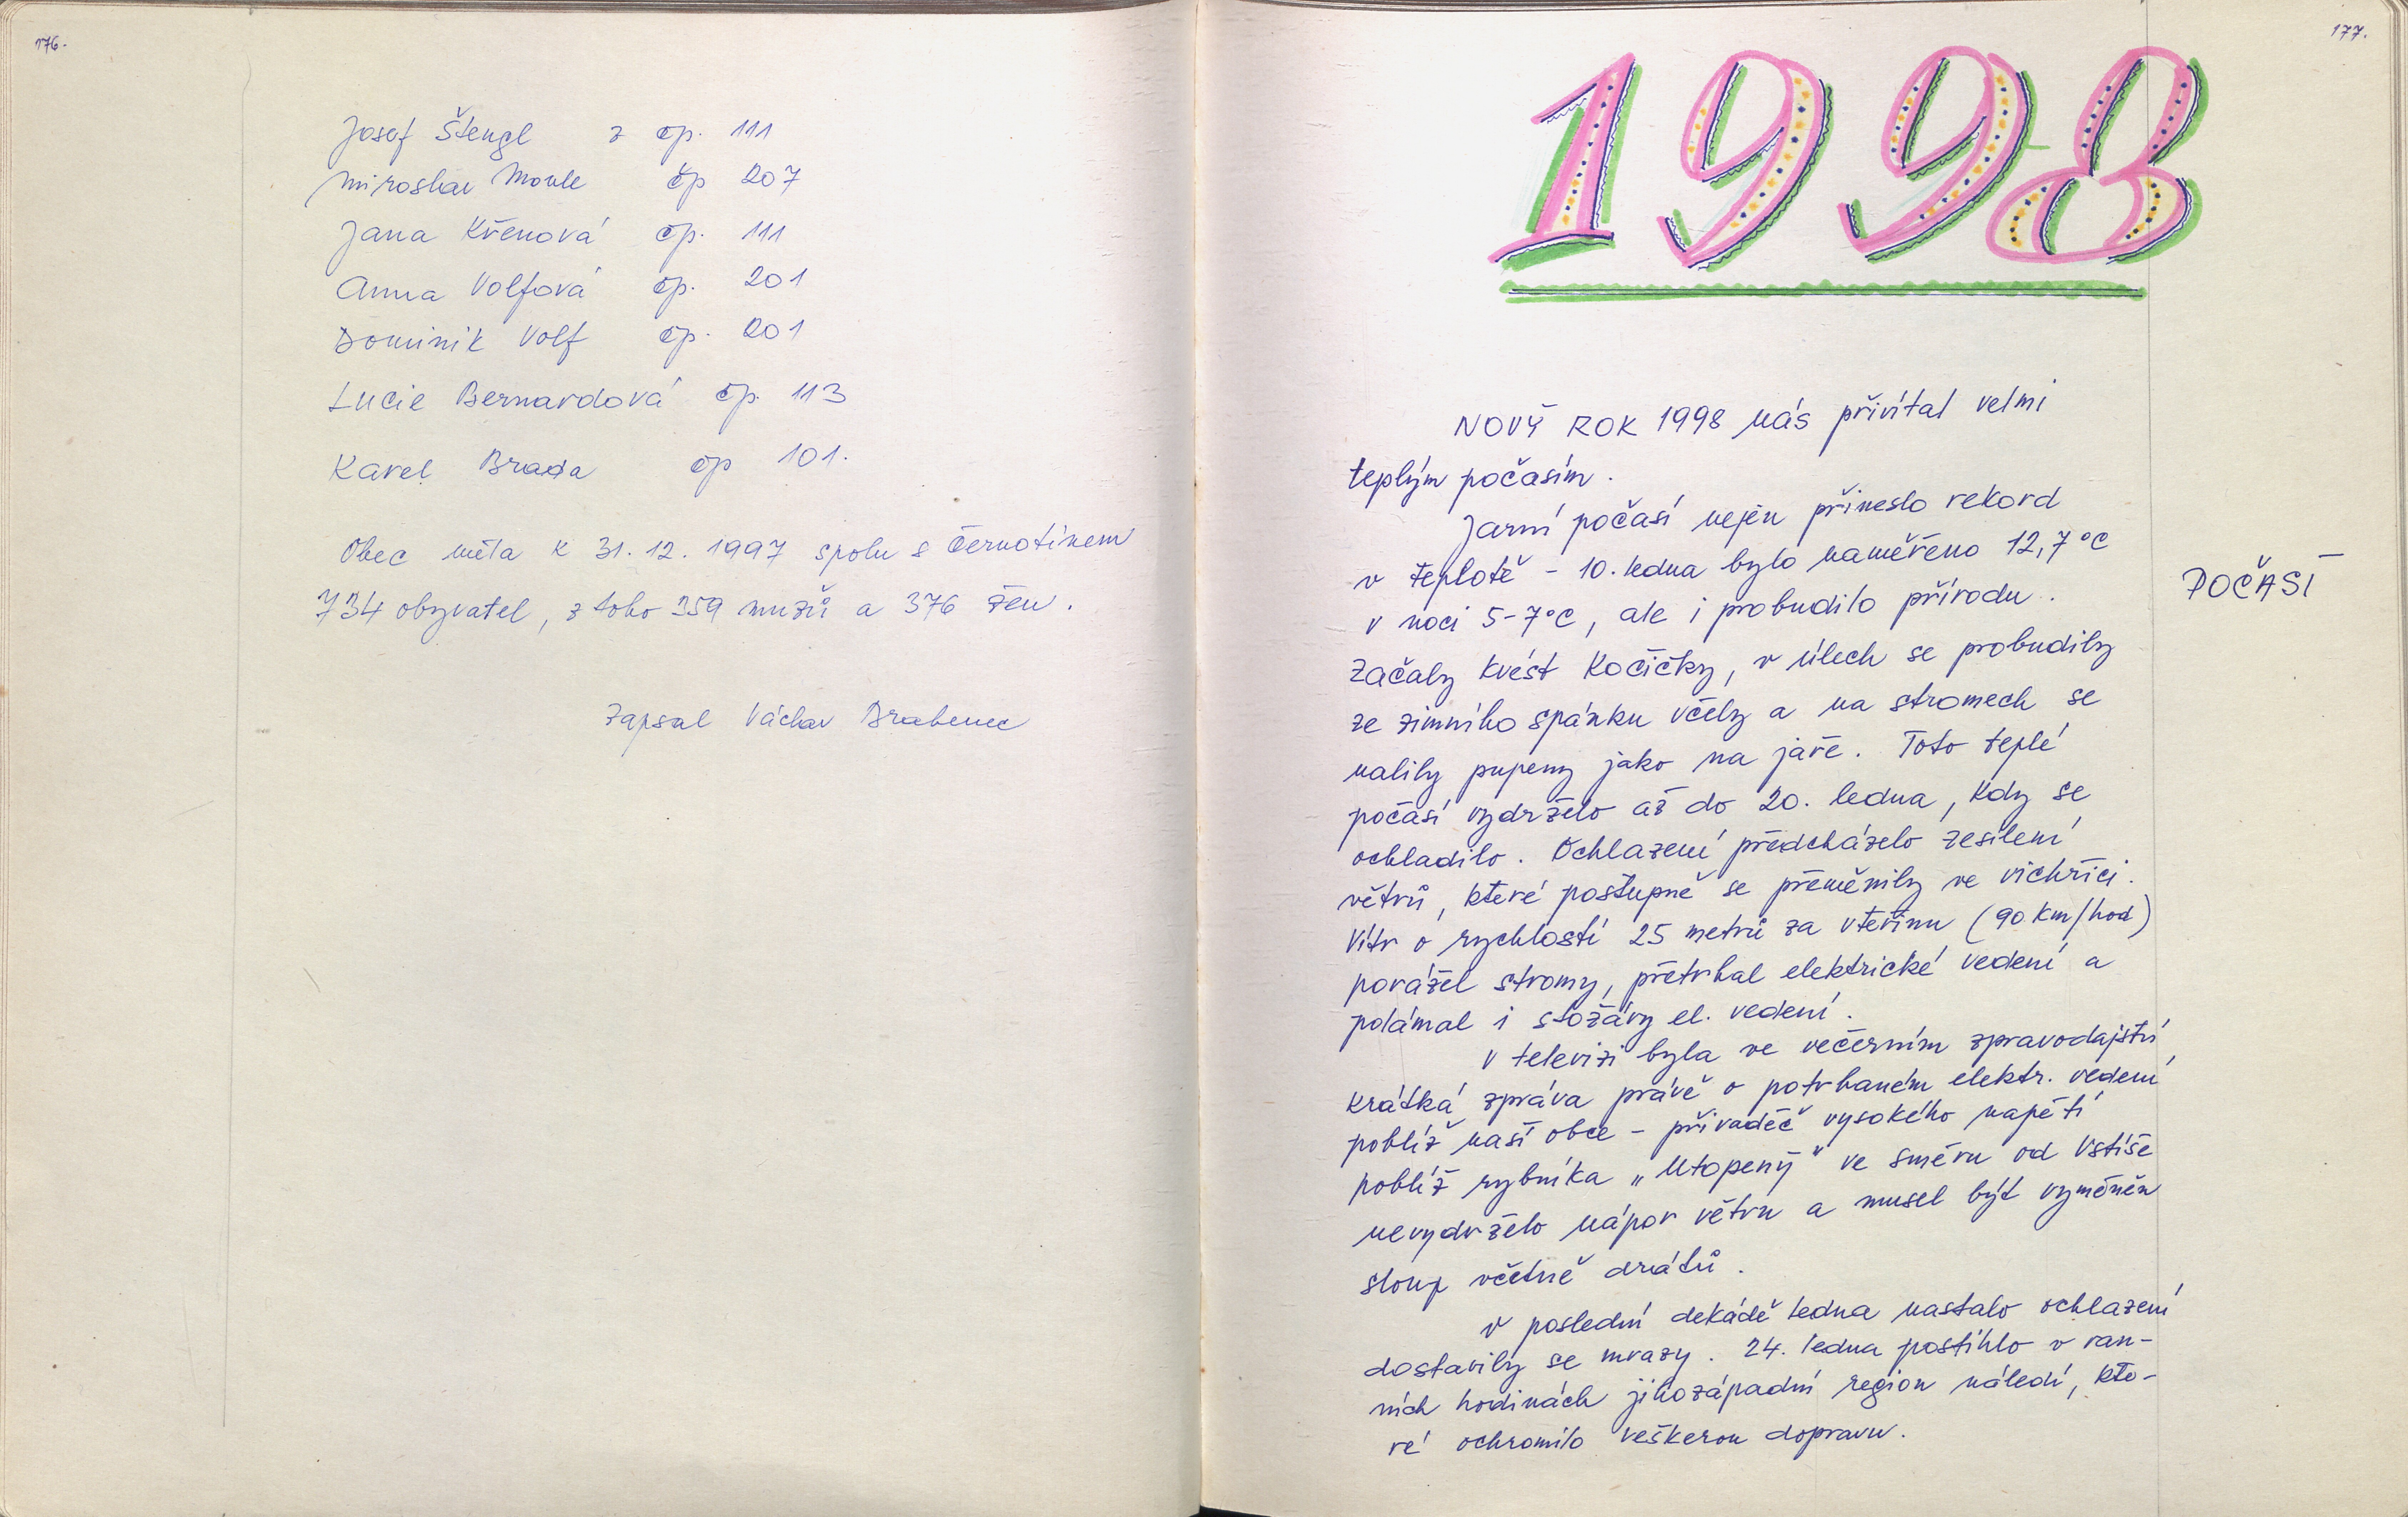 176.
Josef Štengl z čp. 111
Miroslav Moule čp 207
Jana Křenová čp. 111
Anna Volfová čp. 201
Dominik Volf čp. 201
Lucie Bernardová čp. 113
Karel Brada čp 101.
Obec měla k 31. 12. 1997 spolu s Černotínem
734 obyvatel, z toho 359 mužů a 376 žen.
Zapsal Václav Brabenec
177.
1998
NOVÝ ROK 1998 nás přivítal velmi
teplým počasím.
Jarní počasí nejen přineslo rekord
v teplotě - 10. ledna bylo naměřeno 12,7 °C
v noci 5-7 °C, ale i probudilo přírodu.
POČASÍ
Začaly kvést kočičky, v úlech se probudily
ze zimního spánku včely a na stromech se
nalily pupeny jako na jaře. Toto teplé
počasí vydrželo až do 20. ledna, kdy se
ochladilo. Ochlazení předcházelo zesílení
větrů, které postupně se přeměnily ve vichřici.
Vítr o rychlosti 25 metrů za vteřinu (90 km/hod)
porážel stromy, přetrhal elektrické vedení a
polámal i stožáry el. vedení.
V televizi byla ve večerním zpravodajství
krátká zpráva právě o potrhaném elektr. vedení,
poblíž naší obce - přivaděč vysokého napětí
poblíž rybníka „Utopený" ve směru od Vstiše
nevydrželo nápor větru a musel být vyměněn
sloup včetně drátů.
V poslední dekádě ledna nastalo ochlazení,
dostavily se mrazy. 24. ledna postihlo v ran-
ních hodinách jihozápadní region náledí, kte-
ré ochromilo veškerou dopravu.